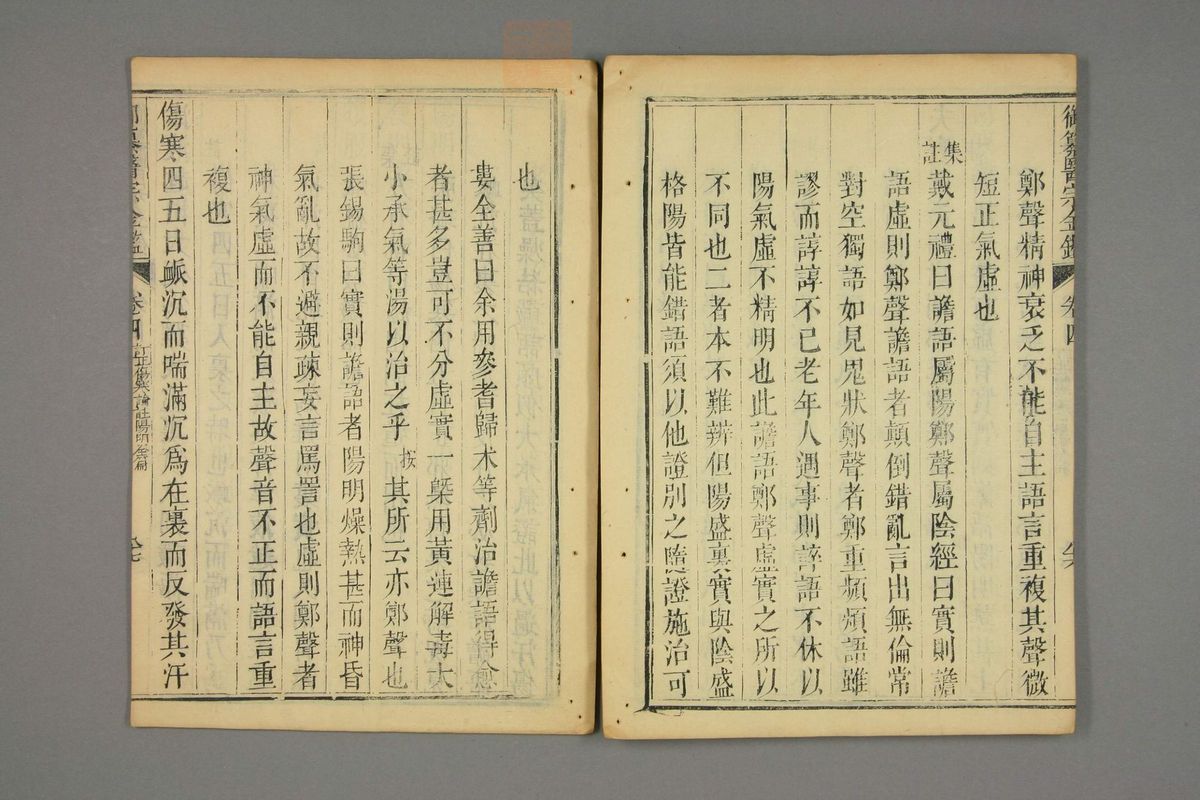 御纂醫宗金鑑 卷四
鄭聲精神衰乏不能自主語言重複其聲微
短正氣虛也
集註
戴元禮曰譫語屬陽鄭聲屬陰經曰實則譫
語虛則鄭聲譫語者顛倒錯亂言出無倫常
對空獨語如見鬼狀鄭聲者鄭重頻煩語雖
謬而諄諄不已老年人遇事則誶語不休以
陽氣虛不精明也此譫語鄭聲虛實之所以
不同也二者本不難辨但陽盛裏實與陰盛
格陽皆能錯語須以他證別之隨證施治可
也
婁全善曰余用參耆歸朮等劑治譫語得愈
者甚多豈可不分虛實一槩用黃連解毒大
小承氣等湯以治之乎 按 其所云亦鄭聲也
張錫駒曰實則譫語者陽明燥熱甚而神昏
氣亂故不避親疎妄言罵詈也虛則鄭聲者
神氣虛而不能自主故聲音不正而語言重
複也
傷寒四五日脈沉而喘滿沉爲在裏而反發其汗